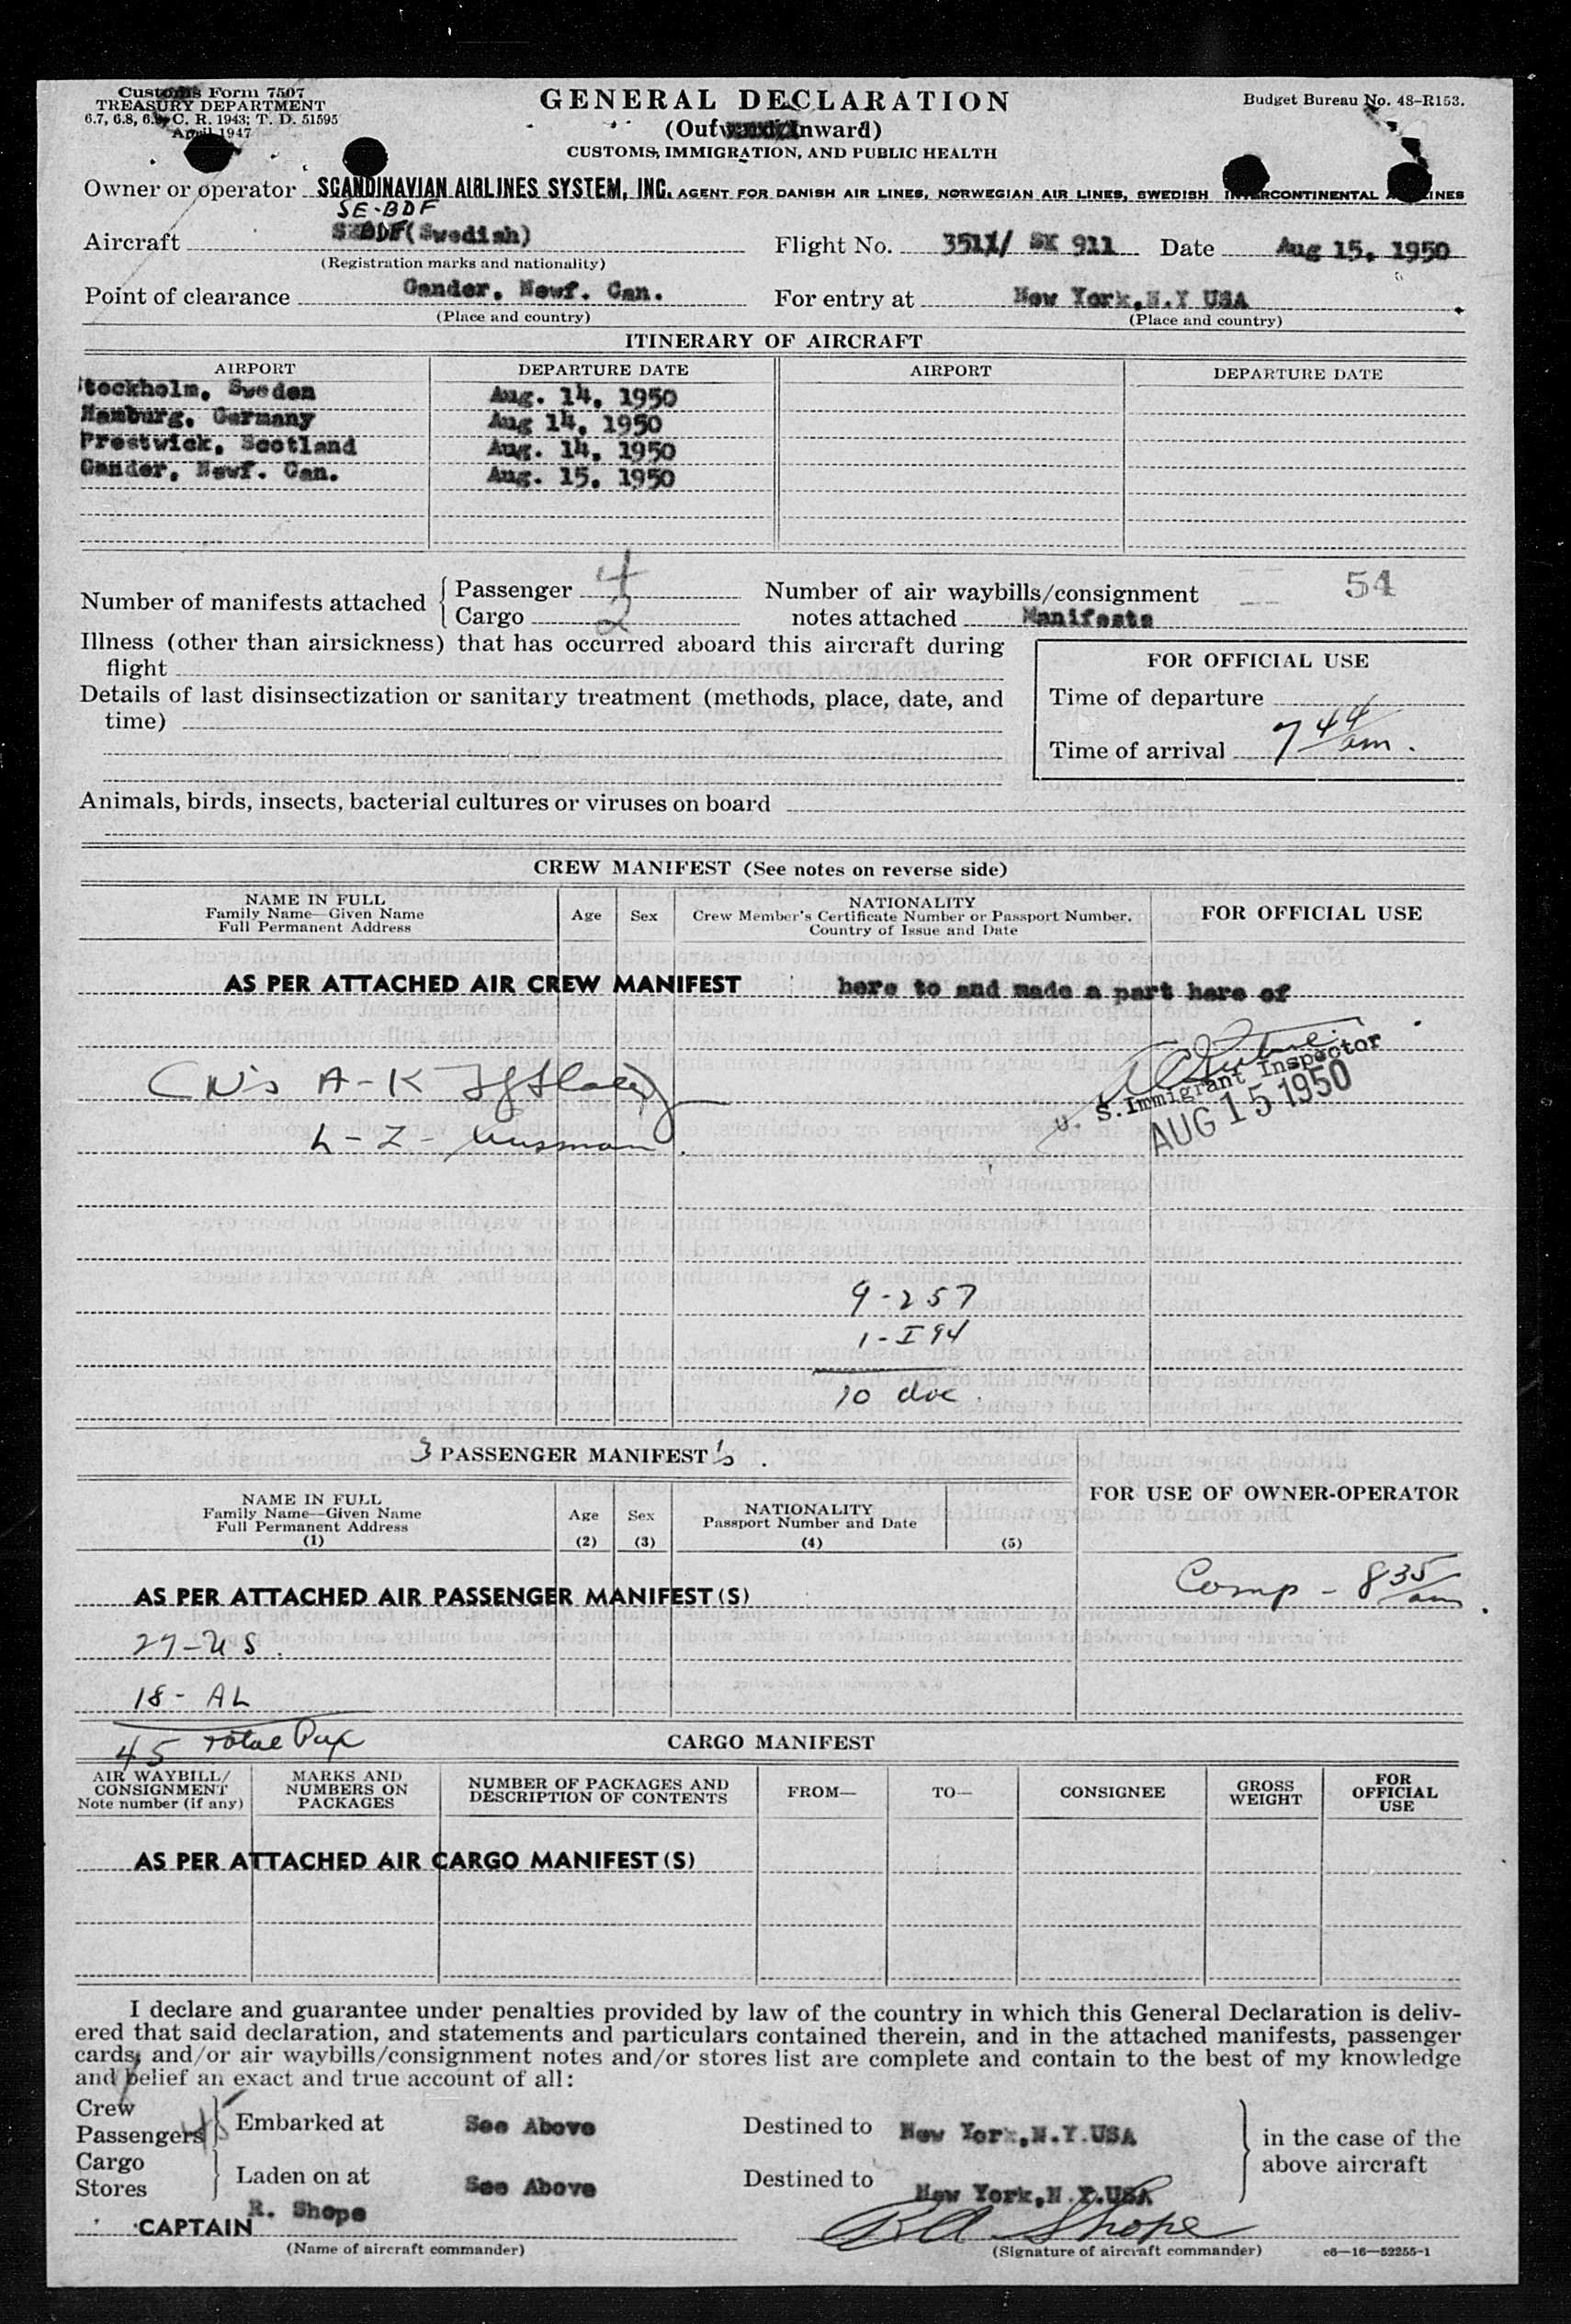 Customs Form 7507
TREASURY DEPARTMENT
6.7, 6.8, 6.9, C. R. 1943; T. D. 51595
April 1947
GENERAL DECLARATION
(Outward/Inward)
CUSTOMS, IMMIGRATION, AND PUBLIC HEALTH
Budget Bureau No. 48-R153.
Owner or operator SCANDINAVIAN AIRLINES SYSTEM, INC. AGENT FOR DANISH AIR LINES, NORWEGIAN AIR LINES, SWEDISH INTERCONTINENTAL AIRLINES
SE-BDF
Aircraft SEBDF(Swedish) Flight No. 3511/ SK 911 Date Aug 15, 1950
(Registration marks and nationality)
Point of clearance Gander, Newf. Can. For entry at New York, N.Y USA
(Place and country) (Place and country)
ITINERARY OF AIRCRAFT
AIRPORT DEPARTURE DATE AIRPORT DEPARTURE DATE
Stockholm, Sweden Aug. 14, 1950
Hamburg, Germany Aug 14, 1950
Prestwick, Scotland Aug. 14, 1950
Gander, Newf. Can. Aug. 15, 1950
Number of manifests attached
Passenger 4
Cargo 2
Number of air waybills/consignment 54
notes attached Manifests
Illness (other than airsickness) that has occurred aboard this aircraft during
flight
Details of last disinsectization or sanitary treatment (methods, place, date, and
time)
FOR OFFICIAL USE
Time of departure
Time of arrival 7 44 am.
Animals, birds, insects, bacterial cultures or viruses on board
CREW MANIFEST (See notes on reverse side)
NAME IN FULL
Family Name—Given Name
Full Permanent Address
Age
Sex
NATIONALITY
Crew Member's Certificate Number or Passport Number.
Country of Issue and Date
FOR OFFICIAL USE
AS PER ATTACHED AIR CREW MANIFEST here to and made a part here of
A-K
U. S. Immigrant Inspector
AUG 15 1950
L-Z-
9-257
1-I94
10 doc.
3 PASSENGER MANIFEST's.
NAME IN FULL
Family Name—Given Name
Full Permanent Address
(1)
Age
(2)
Sex
(3)
NATIONALITY
Passport Number and Date
(4)
(5)
FOR USE OF OWNER-OPERATOR
Comp - 8 35 am.
AS PER ATTACHED AIR PASSENGER MANIFEST(S)
27-US.
18- AL
45 Total Pax
CARGO MANIFEST
AIR WAYBILL/
CONSIGNMENT
Note number (if any)
MARKS AND
NUMBERS ON
PACKAGES
NUMBER OF PACKAGES AND
DESCRIPTION OF CONTENTS
FROM—
TO—
CONSIGNEE
GROSS
WEIGHT
FOR
OFFICIAL
USE
AS PER ATTACHED AIR CARGO MANIFEST(S)
I declare and guarantee under penalties provided by law of the country in which this General Declaration is deliv-
ered that said declaration, and statements and particulars contained therein, and in the attached manifests, passenger
cards, and/or air waybills/consignment notes and/or stores list are complete and contain to the best of my knowledge
and belief an exact and true account of all:
Crew
Passengers 45
Embarked at See Above Destined to New York, N.Y. USA
Cargo
Stores
Laden on at See Above Destined to New York, N.Y. USA
in the case of the
above aircraft
CAPTAIN R. Shope
(Name of aircraft commander)
RA Shope
(Signature of aircraft commander)
c6—16—52255-1